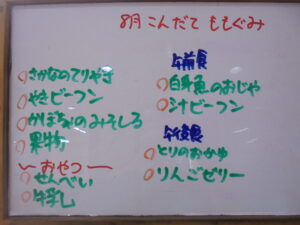 8月 こんだて ももぐみ
さかなのてりやき
やきビーフン
かぼちゃのみそしる
果物
〜おやつ〜
せんべい
牛乳
午前食
白身魚のおじや
汁ビーフン
午後食
とりのおかゆ
りんごゼリー